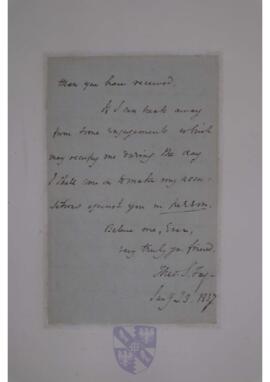 than you have received.
As I can break away
from some engagements which
may occupy me during the day
I shall come on to make my accu-
sations against you in person.
Believe me, Ever,
very truly, yr friend.
Theo. S. Fay
Jany 23. 1837